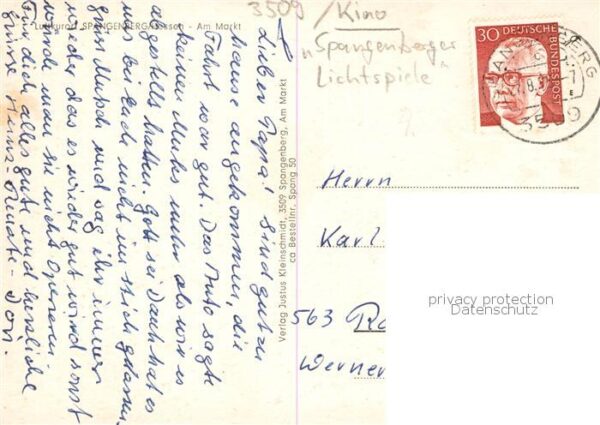 Luftkurort SPANGENBERG/Hessen - Am Markt
Lieber Papa! Sind gut zu
hause angekommen, die
Fahrt war gut. Das Auto sagte
keinen Muks mehr als wir es
abgestellt hatten. Gott sei Dank hat es
uns bei Euch nicht im stich gelassen.
und sag ihr immer
wieder das es wieder gut wird sonst
würde man sie nicht Operieren
Für dich alles gute und herzliche
Grüsse Heinz - Renate - Dori.
Verlag Justus Kleinschmidt, 3509 Spangenberg, Am Markt
ca Bestellnr. Spang 50
3509 / Kino
"Spangenberger
Lichtspiele"
30 DEUTSCHE BUNDESPOST
SPANGENBERG
3509
Herrn
Karl
563
Werner
privacy protection
Datenschutz